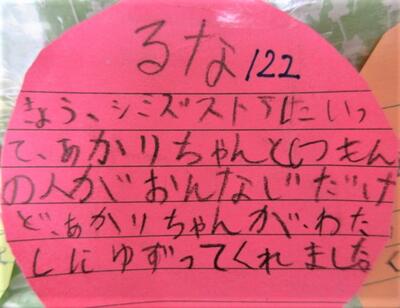 るな 122
きょう、シミズストアにいっ
て、あかりちゃんとしつもん
の人がおんなじだけ
ど、あかりちゃんが、わた
しにゆずってくれました